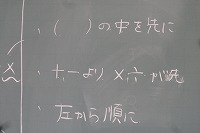 ・（　）の中を先に
・＋－より×÷が先
・左から順に